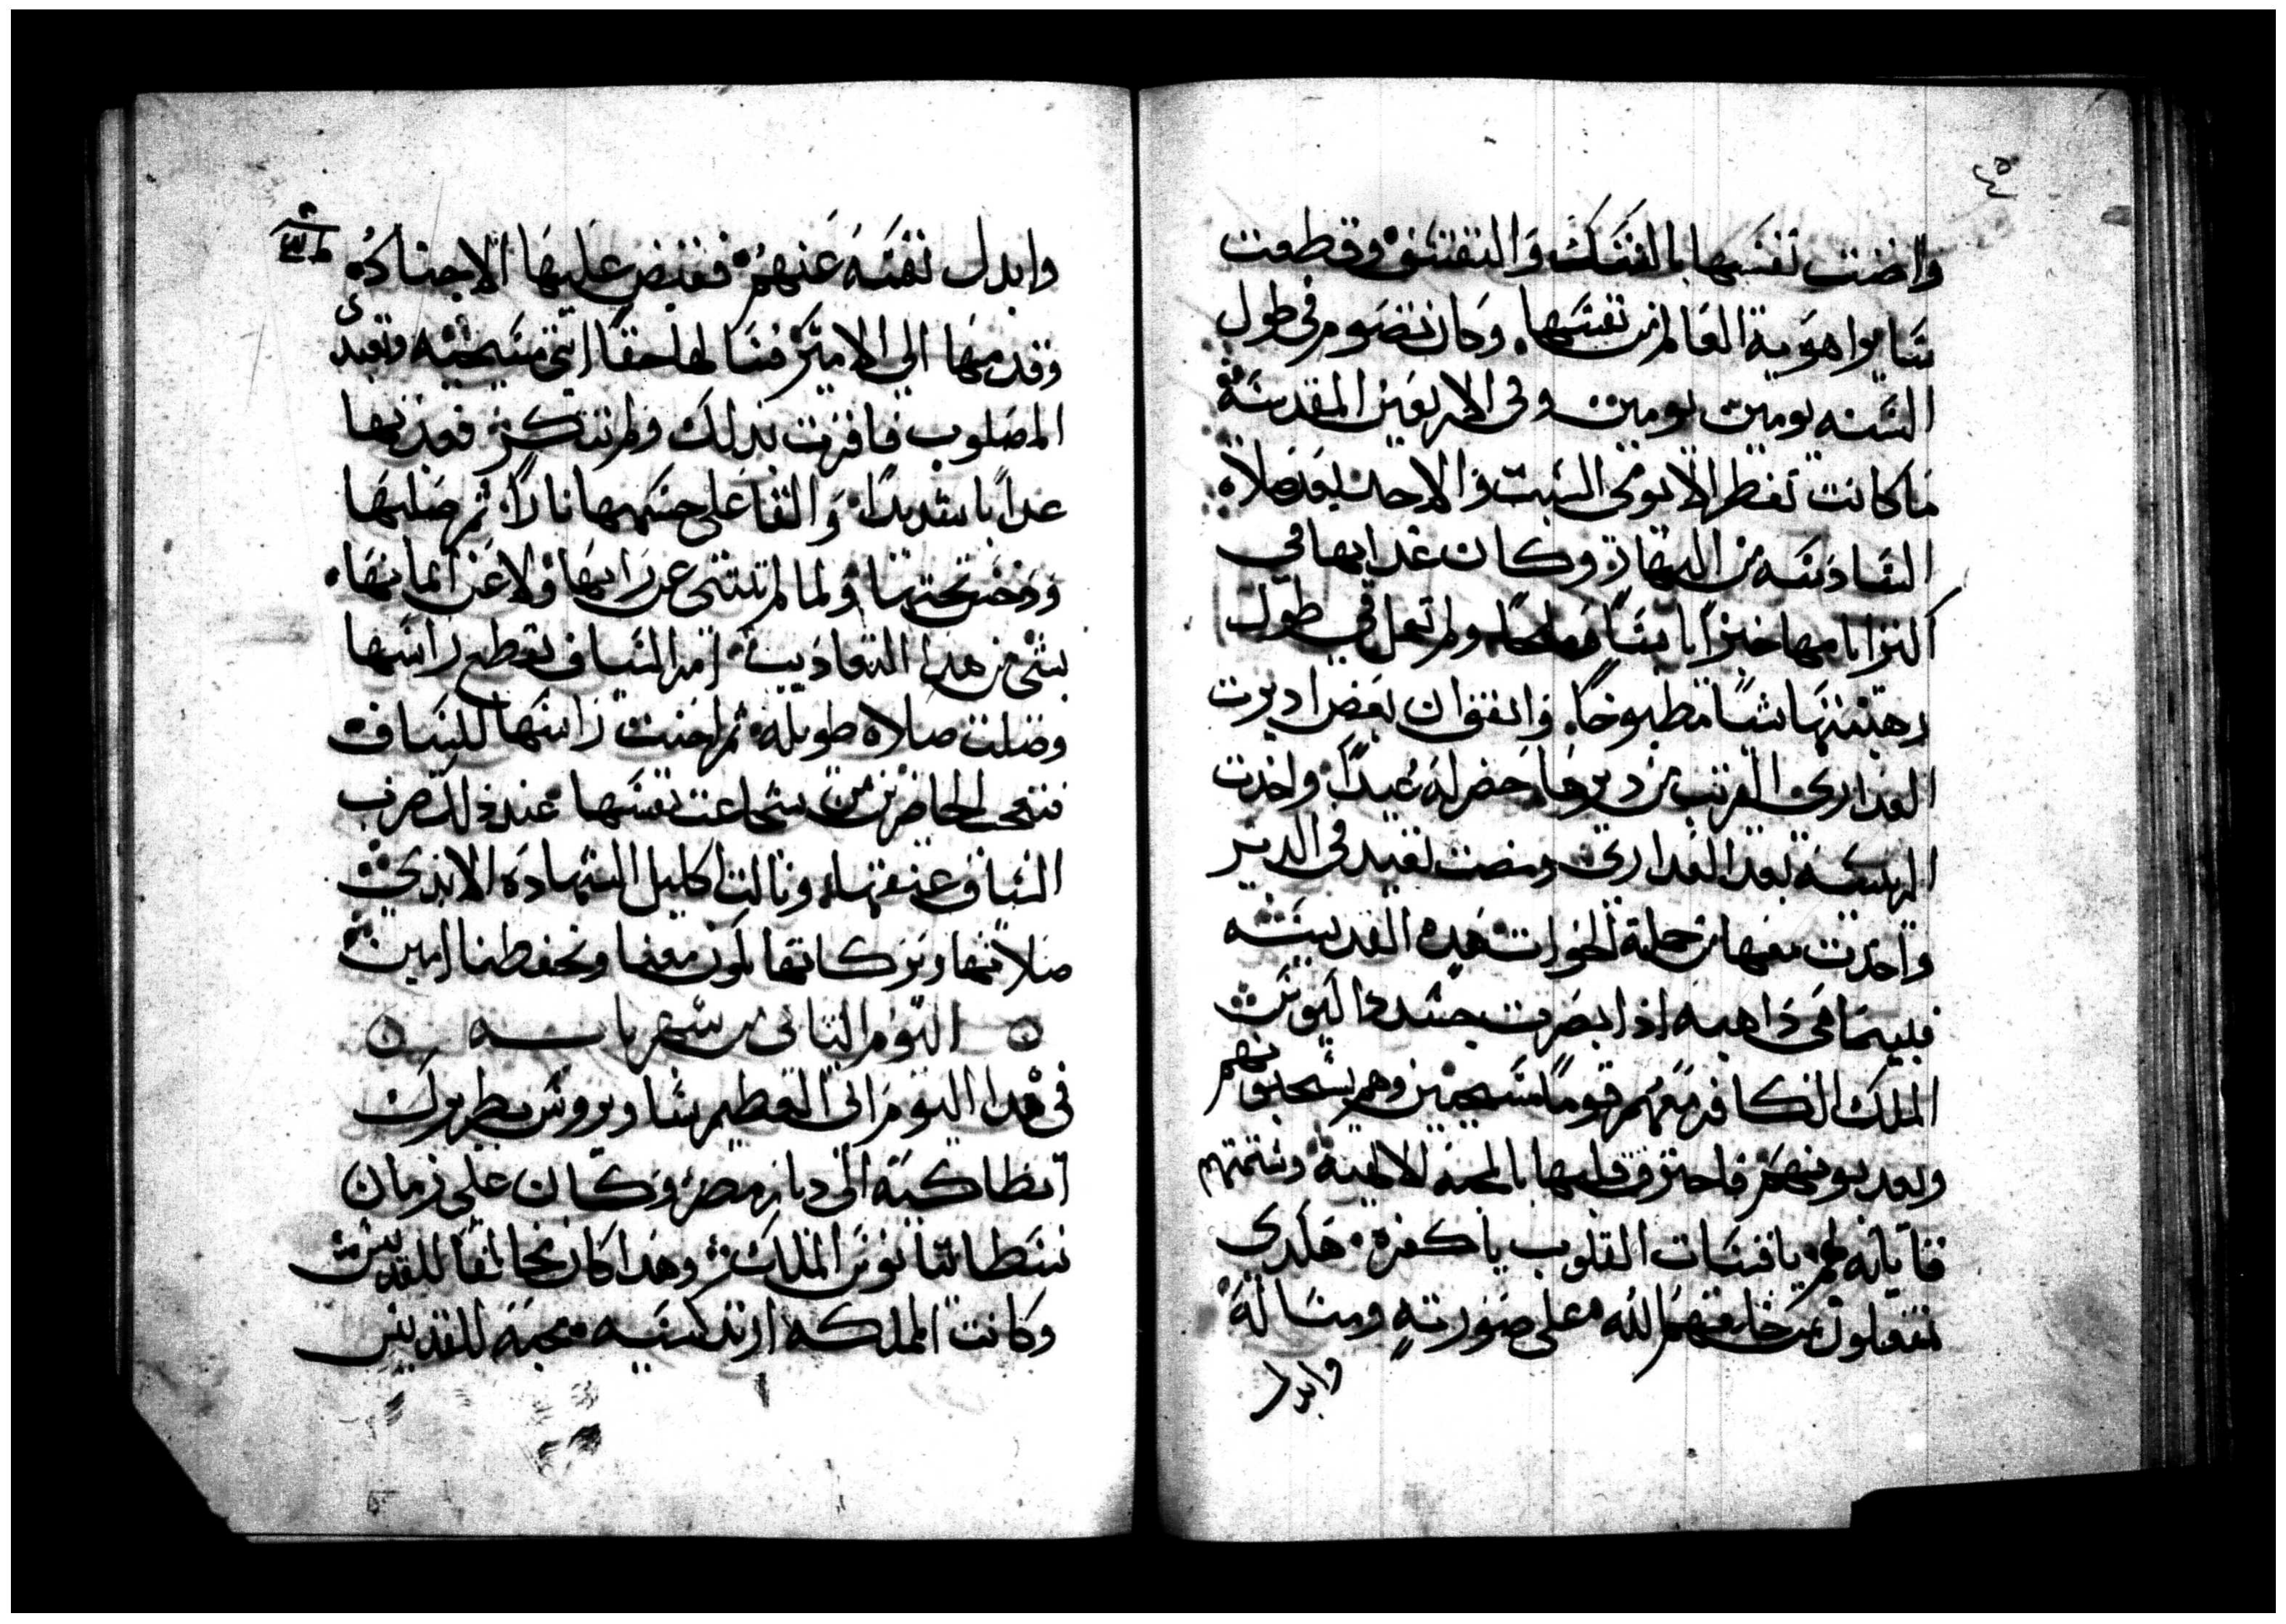 ٤٥
واضنت نفسها بالنسك والتقشف وقطعت
ساير اهوية العالم من نفسها. وكان تصوم في طول
السنه يومين يومين وفي الاربعين المقدسة
ما كانت تفطر الا يومي السبت والاحد بعد صلاة
السادسه من النهار وكان غداها في
اكثر ايامها خبزًا يابسًا وملحًا ولم تاكل في طول
رهبنتها شيًا مطبوخًا. واتفق ان بعض اديرت
العدارى القريب من ديرها حضر له عيدًا واخدت
الريسه بعد العدارى ومضت تعيد في الدير
واخدت معها من جملة الخوات هده القديسه
فبينما هي داهبه اذ ابصرت جند داليونس
الملك الكافر معهم قومًا مسيحيين وهم يسحبونهم
ويعدبونهم فاحترق قلبها بالمحبه الالهيه وشتمتهم
قايله لهم يا قسات القلوب يا كفره هكدى
تفعلون بمن خلقهم الله على صورته ومثاله
وابدل
وابدل نفسه عنهم فقبض عليها الاجناد
وقدمها الى الامير فسالها حقا انتي مسيحيه وتعبدى
المصلوب فاقرت بدلك ولم تنكر فعدبها
عدابًا شديدًا والقا على جسمها نارًا ثم صلبها
ودخن تحتها ولما لم تنتنى عن رايها ولا عن ايمانها.
بشى من هدا التعاديب امر السياف بقطع راسها
وصلت صلاه طويله ثم احنت راسها للسياف
فتعجب الحاضرين من شجاعت نفسها عند دلك ضرب
السياف عنقها ونالت اكليل الشهاده الابدى
صلاتها وبركاتها تكون معنا وتحفظنا امين
اليوم التاني من شهر بابه
في هدا اليوم اتى العظيم ساويروس بطريرك
انطاكيه الى ديار مصر وكان على زمان
يسطاتيانوس الملك وهدا كان مخالفا للقديس
وكانت الملكه ارتدكسيه محبه للقديس